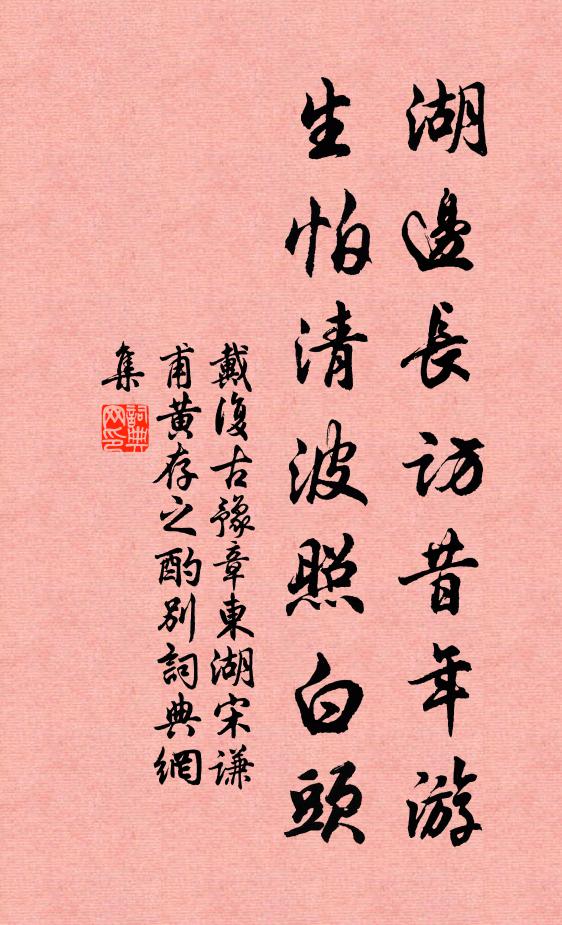 湖邊長訪昔年游
生怕清波照白頭
戴復古豫章東湖宋謙
甫黄存之酌別詞典網
集
詞典
网印